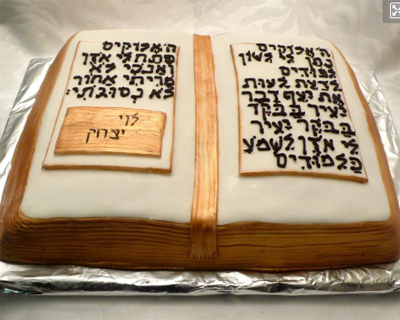 ה' אלוקים
נתן לי לשון
למודים
לדעת לעות
את יעף דבר
יעיר בבקר
בבקר יעיר
לי אזן לשמע
כלמודים
ה' אלוקים
פתח לי אזן
ואנכי לא
מריתי אחור
לא נסוגתי:
לוי
יצחק